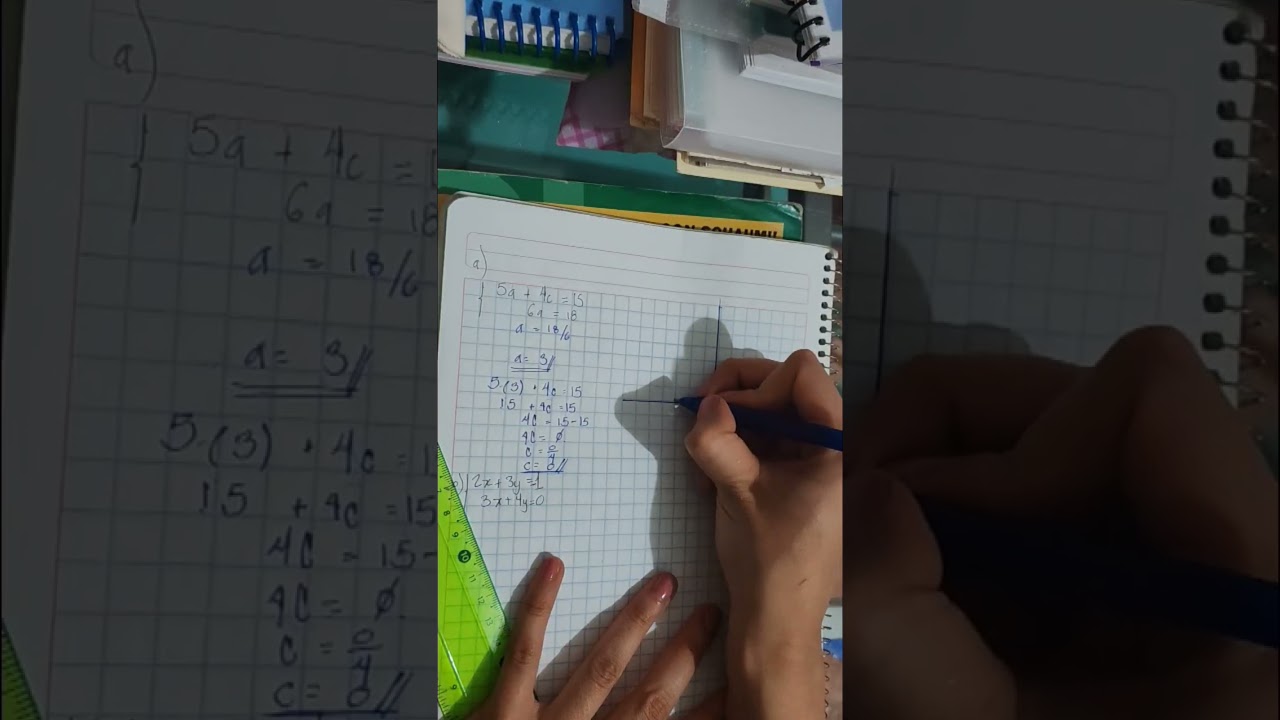 a)
5a + 4c = 15
6a = 18
a = 18/6
a = 3//
5.(3) + 4c = 15
15 + 4c = 15
4c = 15-15
4c = 0
c = 0/4
c = 0//
2x + 3y = -1
3x + 4y = 0